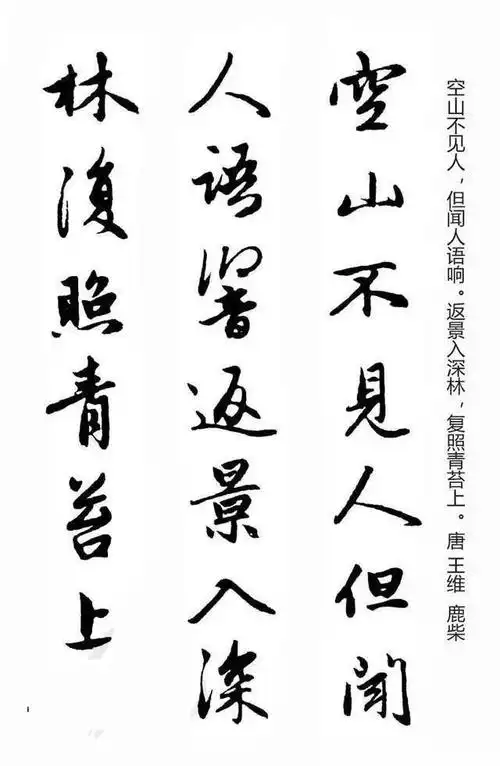 空山不见人，但闻人语响。返景入深林，复照青苔上。唐 王维 鹿柴
空山不見人但聞
人語響返景入深
林復照青苔上